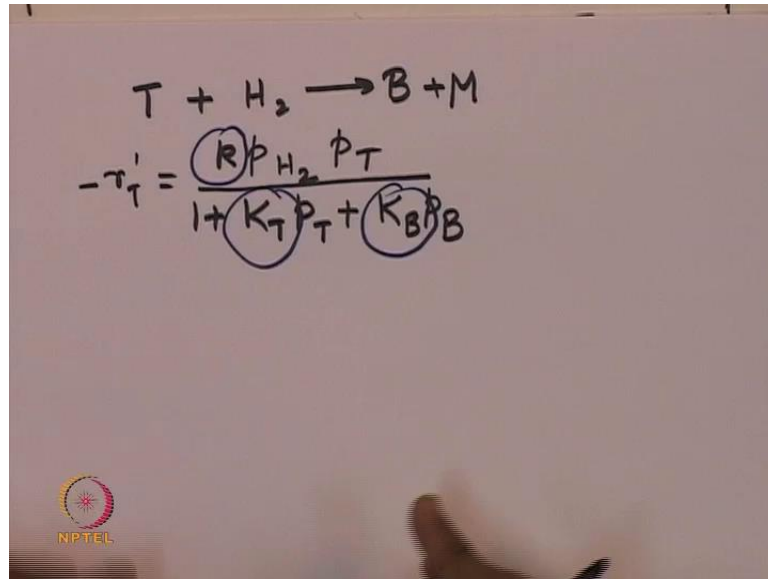 T + H₂ ⟶ B + M
-r'_T = k p_H₂ p_T / (1 + K_T p_T + K_B p_B)
NPTEL